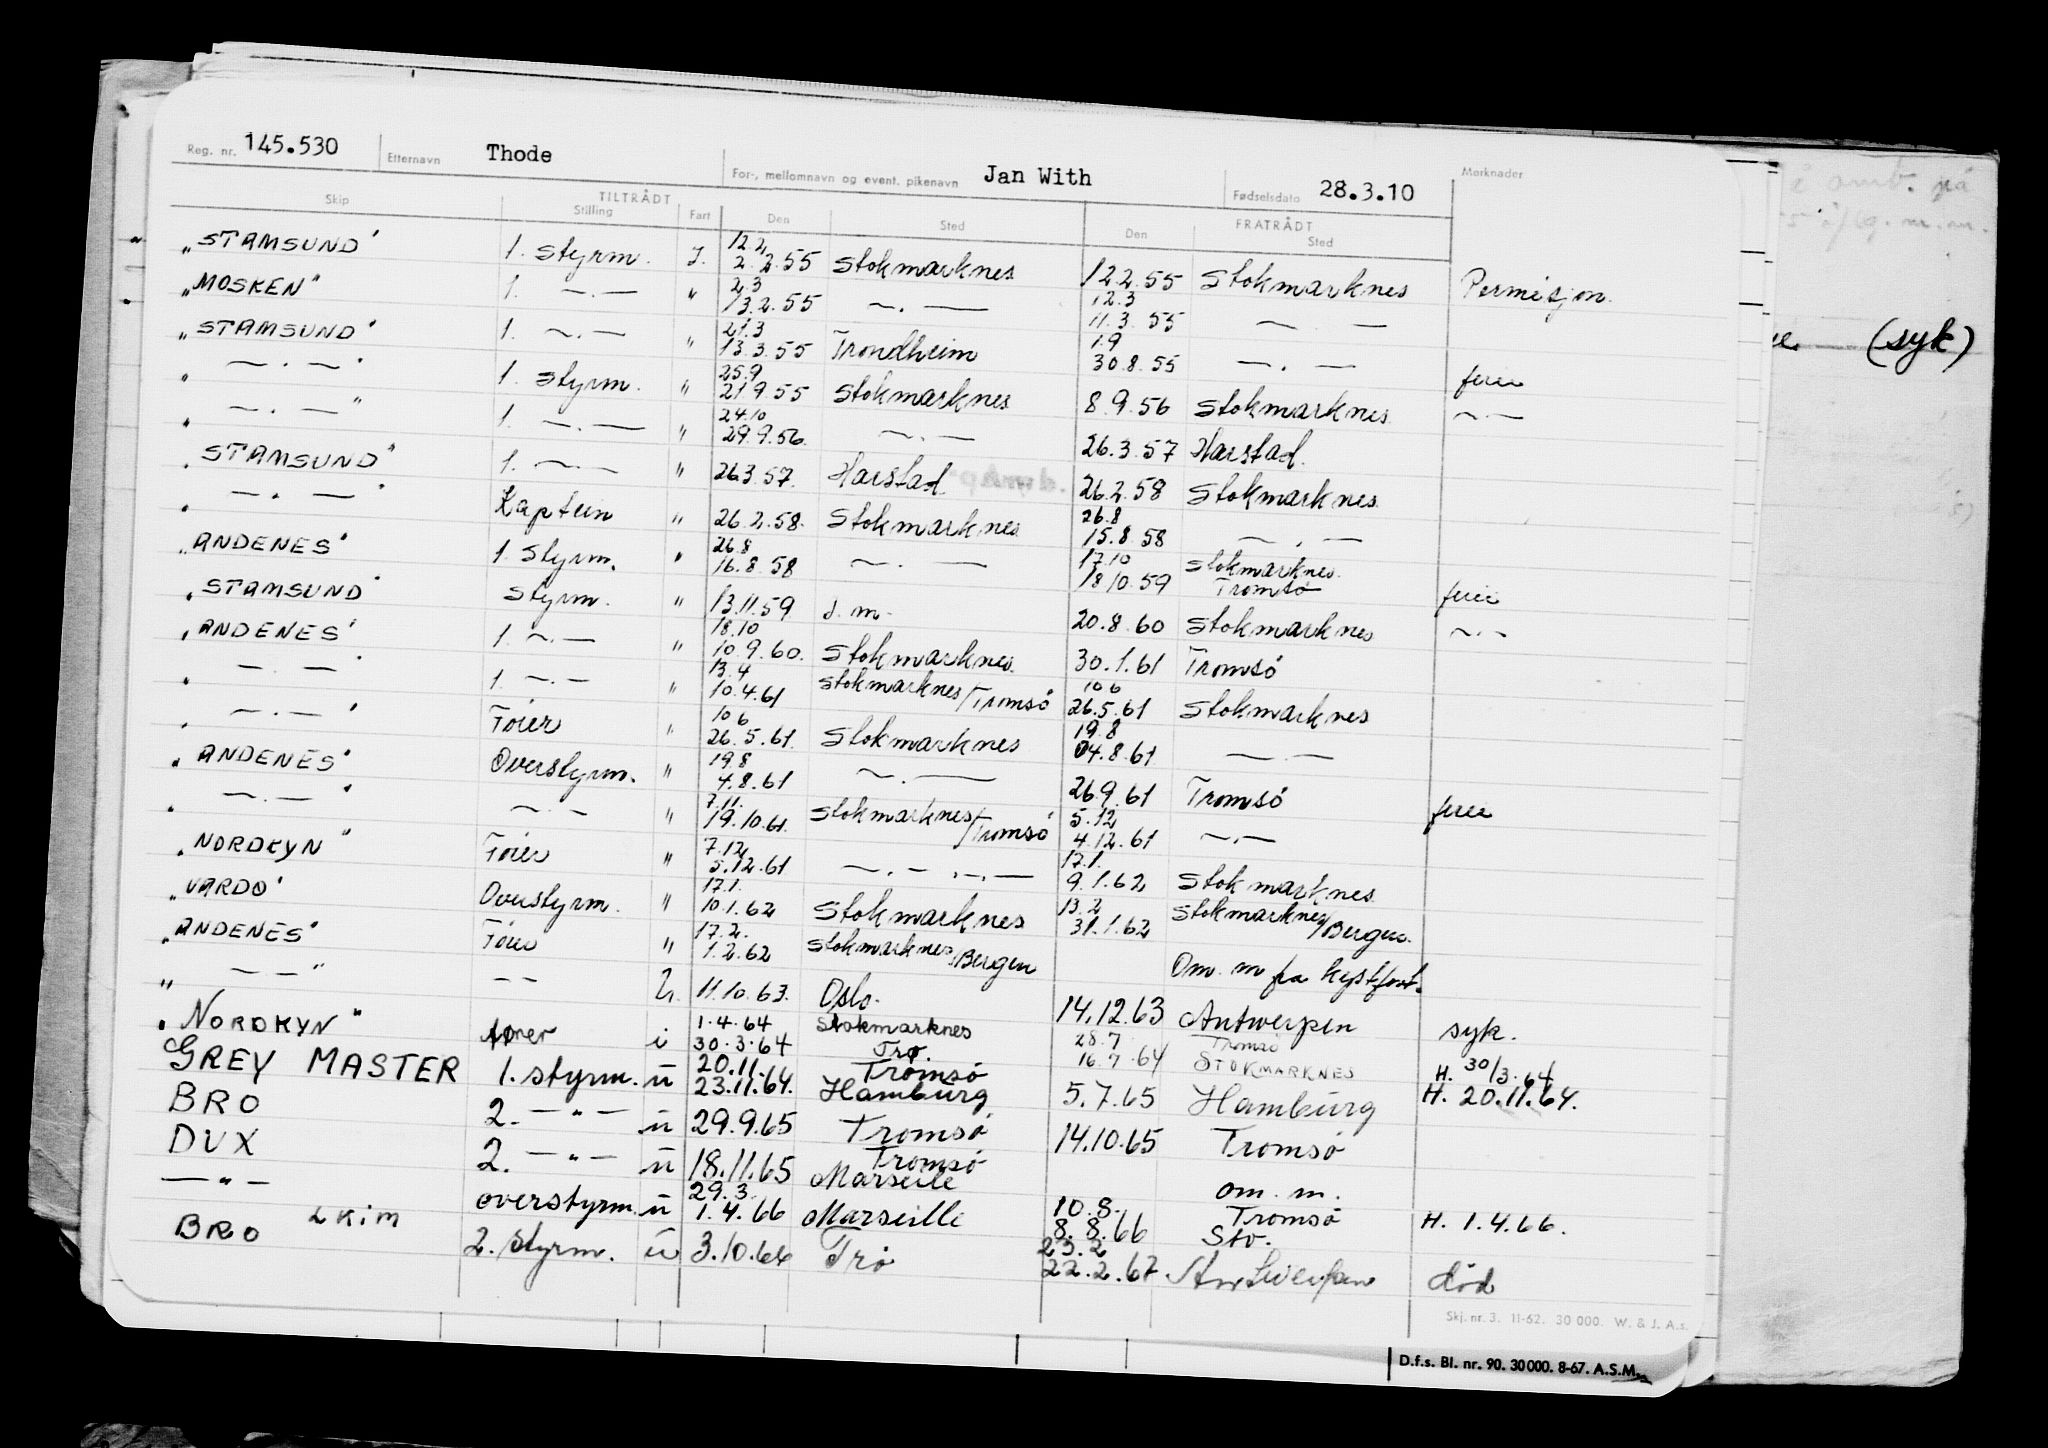 Reg. nr. 145.530 Etternavn Thode For-, mellomnavn og event. pikenavn Jan With Fødselsdato 28.3.10 Merknader
TILTRÅDT FRATRÅDT
Skip Stilling Fart Den Sted Den Sted
"STAMSUND" 1. styrm. I. 12.2 2.2.55 Stokmarknes 12.2.55 Stokmarknes Permisjon.
"MOSKEN" 1. —.— " 2.3 13.2.55 —.— 12.3 11.3.55 — —
"STAMSUND" 1. —.— " 21.3 13.3.55 Trondheim 1.9 30.8.55 —.— ferie
" —.—" 1. styrm. " 25.9 21.9.55 Stokmarknes 8.9.56 Stokmarknes —.—
" —.—" 1. —.— " 24.10 29.9.56. —.— 26.3.57 Harstad.
"STAMSUND" 1. —.— " 26.3.57. Harstad 26.2.58 Stokmarknes
" —.—" Kaptein " 26.2.58. Stokmarknes 26.8 15.8.58 —.—
"ANDENES" 1. styrm. " 26.8 16.8.58 —.— 17.10 18.10.59 Stokmarknes. Tromsø ferie
"STAMSUND" styrm. " 13.11.59 s.m. 20.8.60 Stokmarknes —.—
"ANDENES" 1. —.— " 18.10 10.9.60. Stokmarknes. 30.1.61 Tromsö
" —.—" 1. —.— " 13.4 10.4.61 Stokmarknes/Tromsö 10.6 26.5.61 Stokmarknes
" —.—" Förer " 10.6 26.5.61. Stokmarknes 19.8 04.8.61 — —
"ANDENES" Overstyrm. " 19.8 4.8.61 —.— 26.9.61 Tromsö ferie
" —.—" —.— " 7.11. 19.10.61. Stokmarknes/Tromsö 5.12 4.12.61 —.—
"NORDKYN" Förer " 7.12 5.12.61 —.— —.— 17.1. 9.1.62 Stokmarknes.
"VARDØ" Overstyrm. " 17.1. 10.1.62 Stokmarknes 13.2 31.1.62 Stokmarknes/Bergen.
"ANDENES" Förer " 17.2. 1.2.62 Stokmarknes/Bergen Om. m fra kystfart.
" — —" — — U. 11.10.63. Oslo. 14.12.63 Antwerpen syk.
"NORDKYN" fører i 1.4.64 30.3.64 Stokmarknes Trø. 28.7 16.7.64 Tromsö STOKMARKNES H. 30/3.64
GREY MASTER 1. styrm. u 20.11. 23.11.64. Tromsö Hamburg 5.7.65 Hamburg H. 20.11.64.
BRO 2. —"— u 29.9.65 Tromsö 14.10.65 Tromsö
DUX 2. —"— u 18.11.65 Tromsö Marseile om. m.
—"— overstyrm. u 29.3. 1.4.66 Marseille 10.8. 8.8.66 Tromsö Sto. H. 1.4.66.
BRO EKIM 2. styrm. u 3.10.66 Trö 23.2 22.2.67 død
Skj. nr. 3. 11-62. 30 000. W. & J. A.s.
D.f.s. Bl. nr. 90. 30 000. 8-67. A.S.M.
(syk)